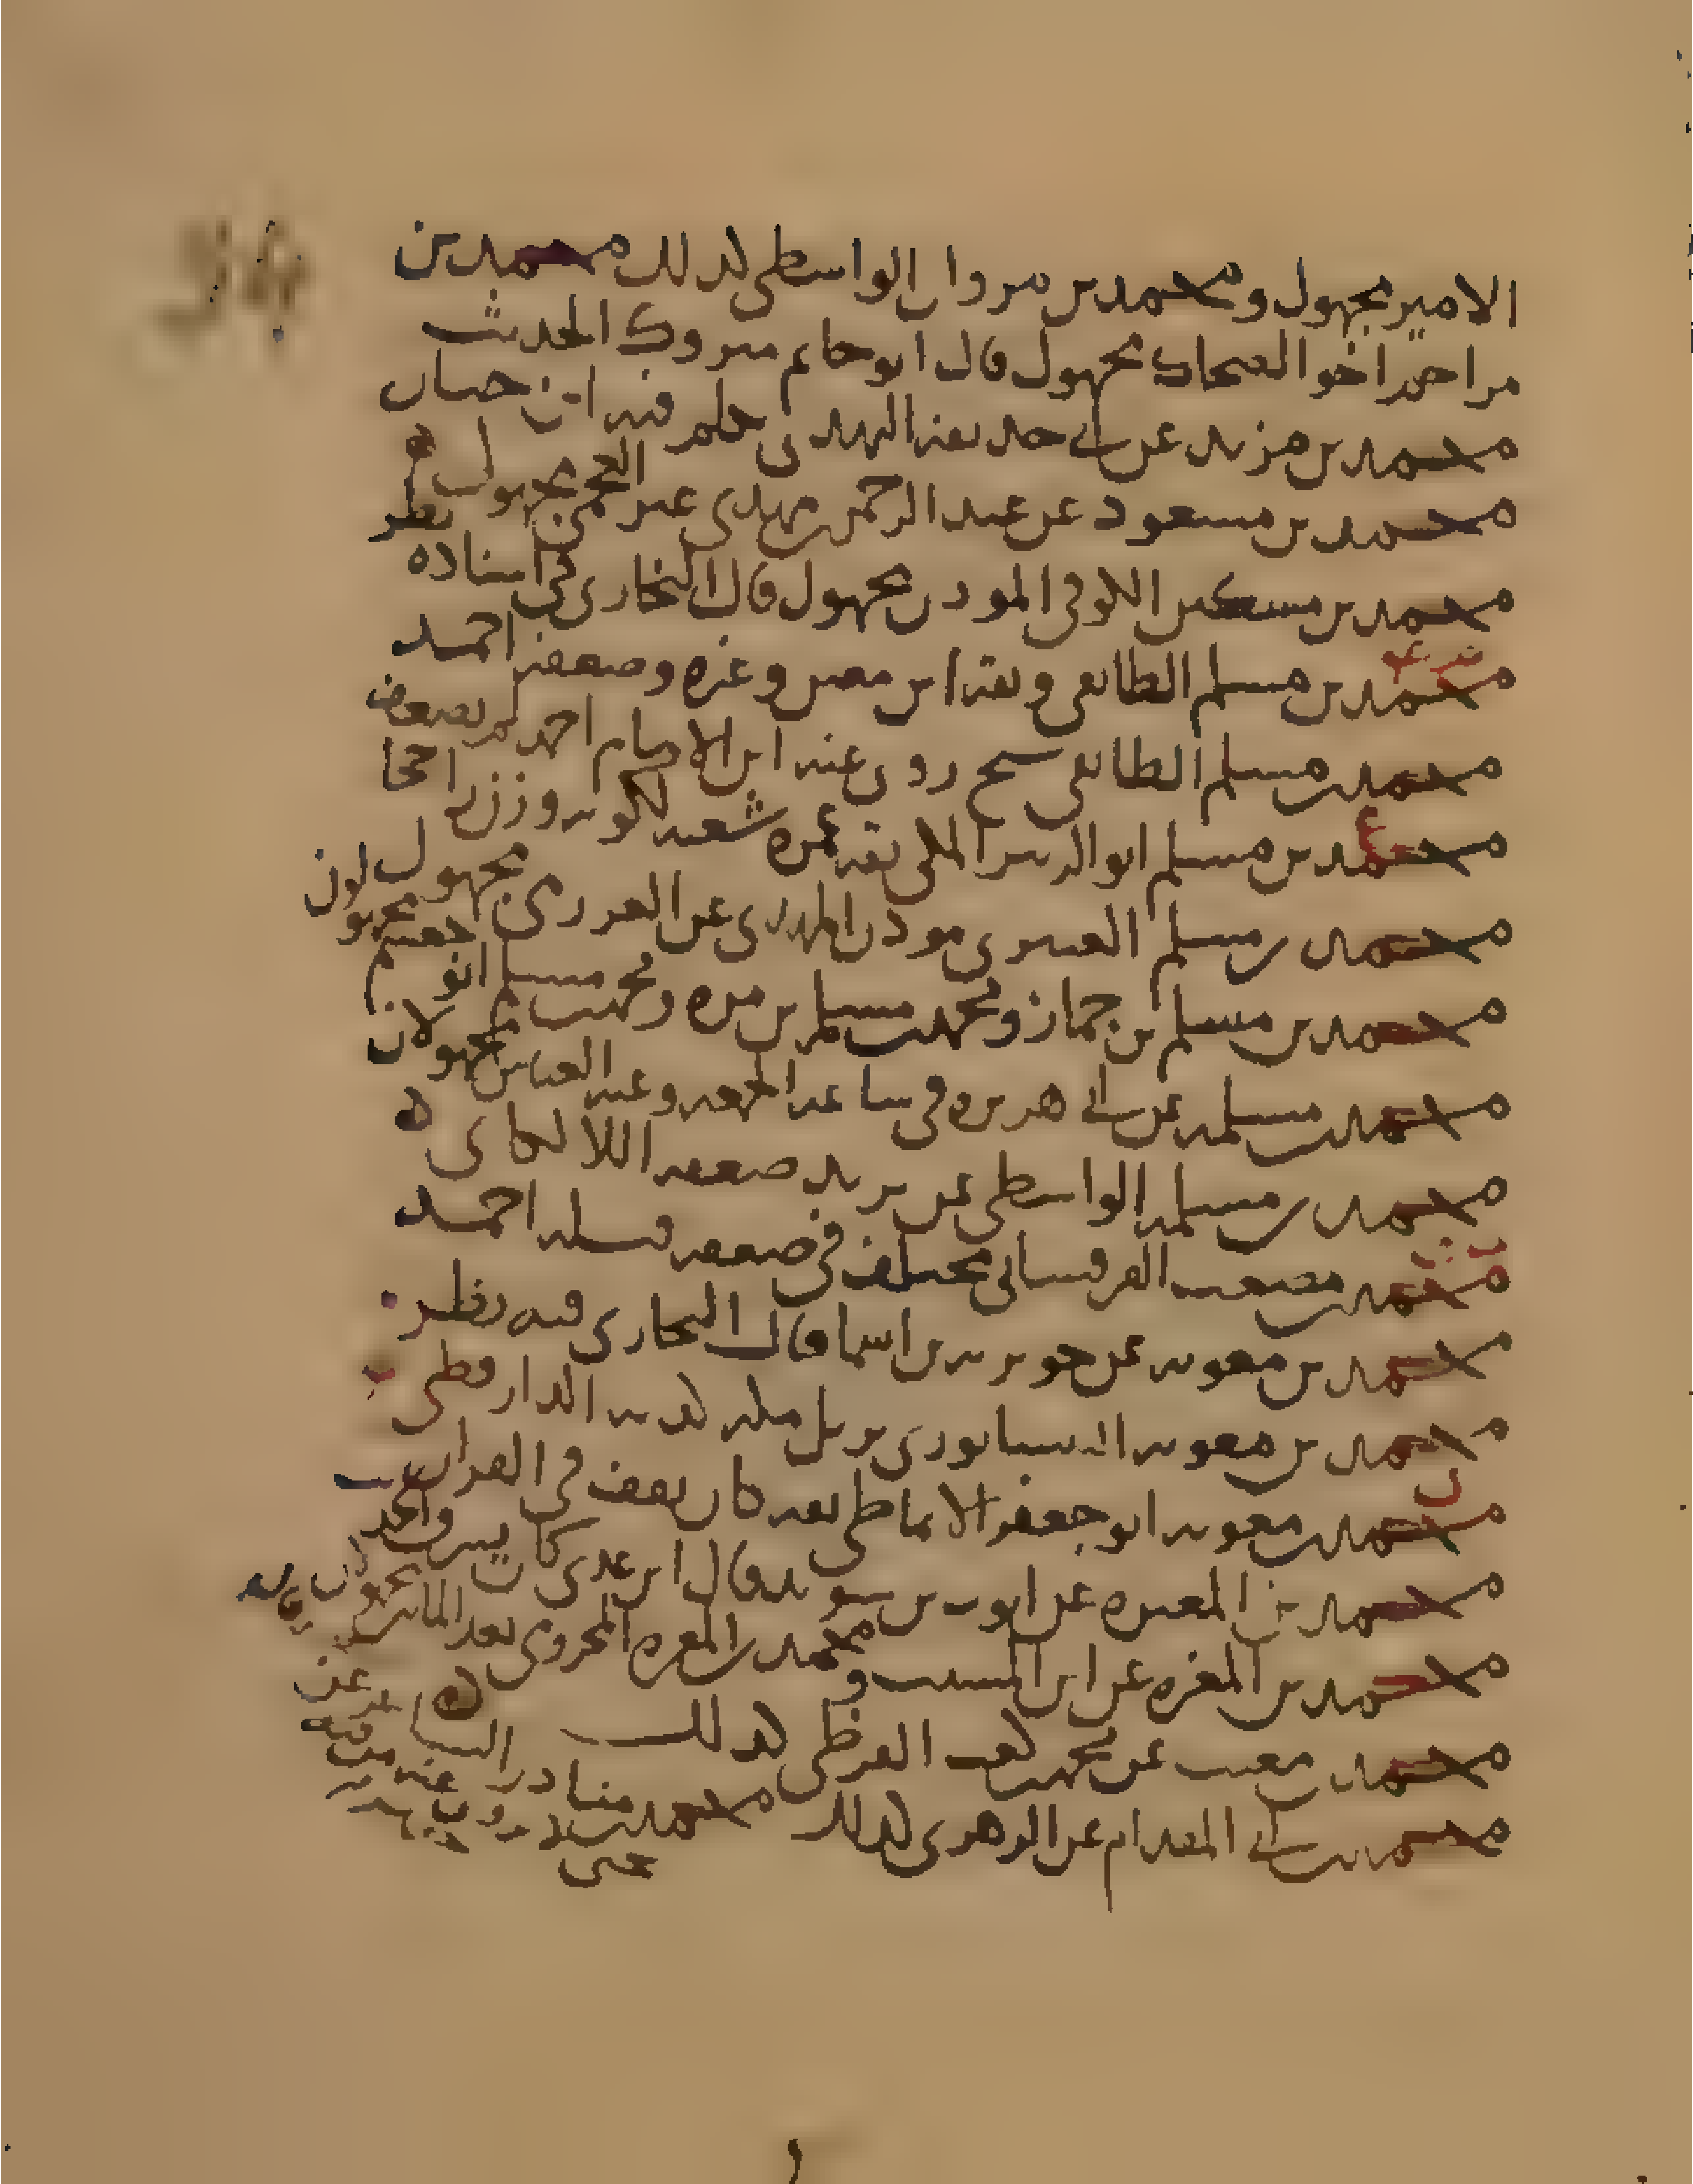 الامير مجهول ومحمد بن مروان الواسطى كذلك محمد بن
مزاحم اخو الضحاك مجهول قال ابو حاتم متروك الحديث
محمد بن مزيد عن ابى حذيفة النهدى تكلم فيه ابن حبان
محمد بن مسعود عن عبد الرحمن مهدى غير العجمى مجهول
محمد بن مسكين الكوفى الموذن مجهول قال البخارى فى اسناده نظر
محمد بن مسلم الطائفى وثقه ابن معين وغيره وضعفه احمد
محمد بن مسلم الطائفى شيخ روى عنه ابن الامام احمد لم يضعف
محمد بن مسلم ابو الزبير المكى ثقة غمزه شعبة لكونه وزن راجحا
محمد بن مسلم العنبرى موذن المهدى عن العرزمى مجهول
محمد بن مسلم بن جماز ومحمد بن مسلم بن مره ومحمد بن مسلم ابو جعشم مجهولون
محمد بن مسلمه عن ابى هريره فى ساعة الجمعه وعنه العباس مجهولان
محمد بن مسلمه الواسطى عن يزيد ضعفه اللالكاى
محمد بن مصعب القرقسانى مختلف فى ضعفه قبله احمد
محمد بن معويه عن جويريه بن اسما قال البخارى فيه نظر
محمد بن معويه النيسابورى نزيل مكه كذبه الدارقطنى
محمد بن معويه ابو جعفر الانماطى ثقه كان يقف فى القران
محمد بن المغيره عن ايوب بن سويد قال ابن عدى كان يسرق
محمد بن المغيره عن ابن المسيب ومحمد بن المغيره المخزومى بعد الماتين مجهولان
محمد بن مغيث عن محمد بن كعب القرظى كذلك
محمد بن ابى المقدام عن الزهرى كذلك محمد بن مناذر الشاعر عن
يحيى